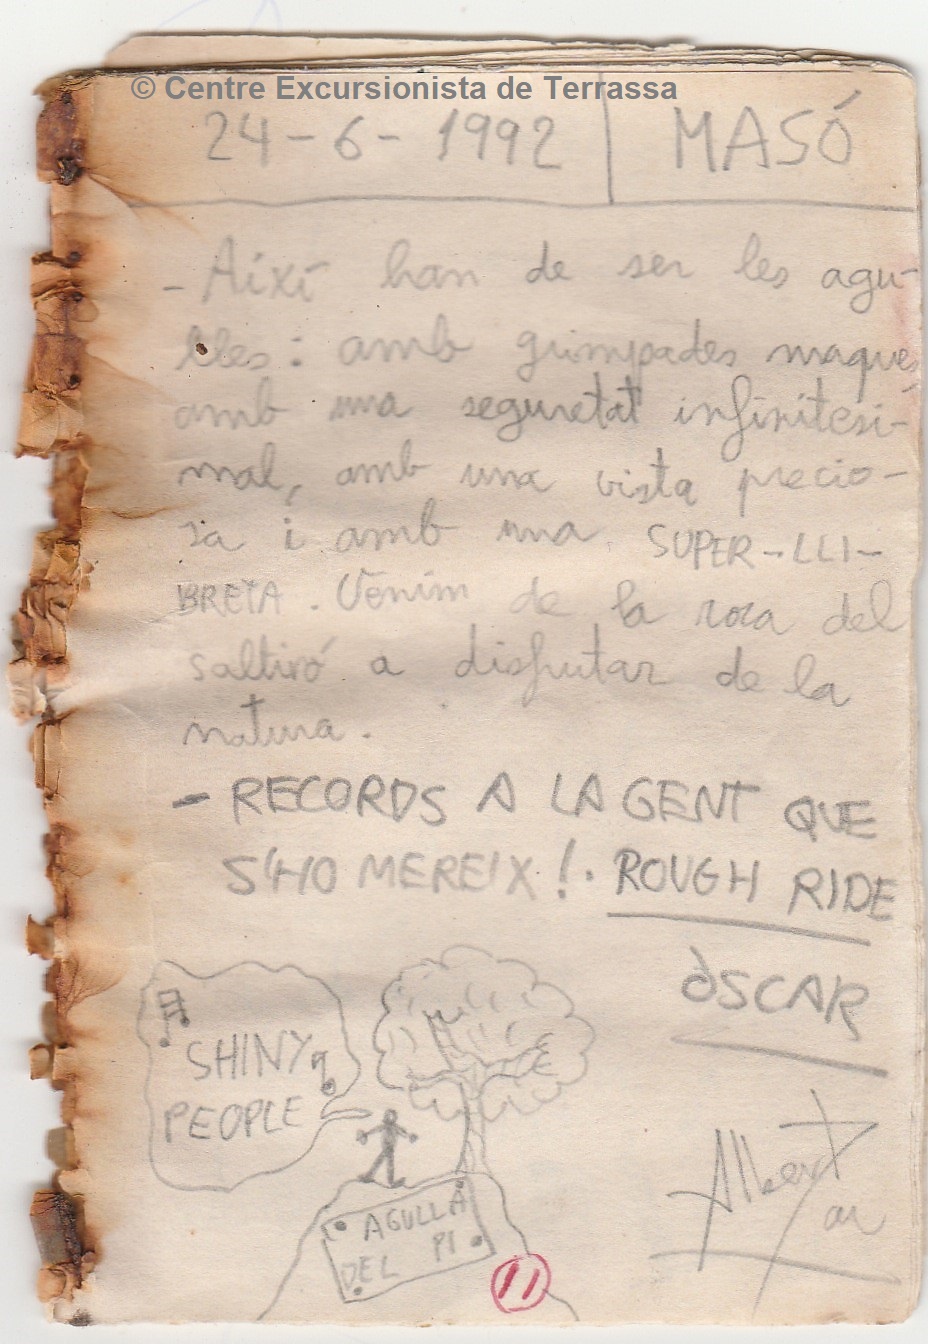 © Centre Excursionista de Terrassa
24-6-1992 | MASÓ
- Així han de ser les agu-
lles: amb grimpades maques
amb una seguretat infinitesi-
mal, amb una vista precio-
sa i amb una SUPER-LLI-
BRETA. Venim de la roca del
saltiró a disfrutar de la
natura.
- RECORDS A LA GENT QUE
S'HO MEREIX!. ROUGH RIDE
ÒSCAR
SHINY
PEOPLE
Albert
AGULLA
DEL PI
11